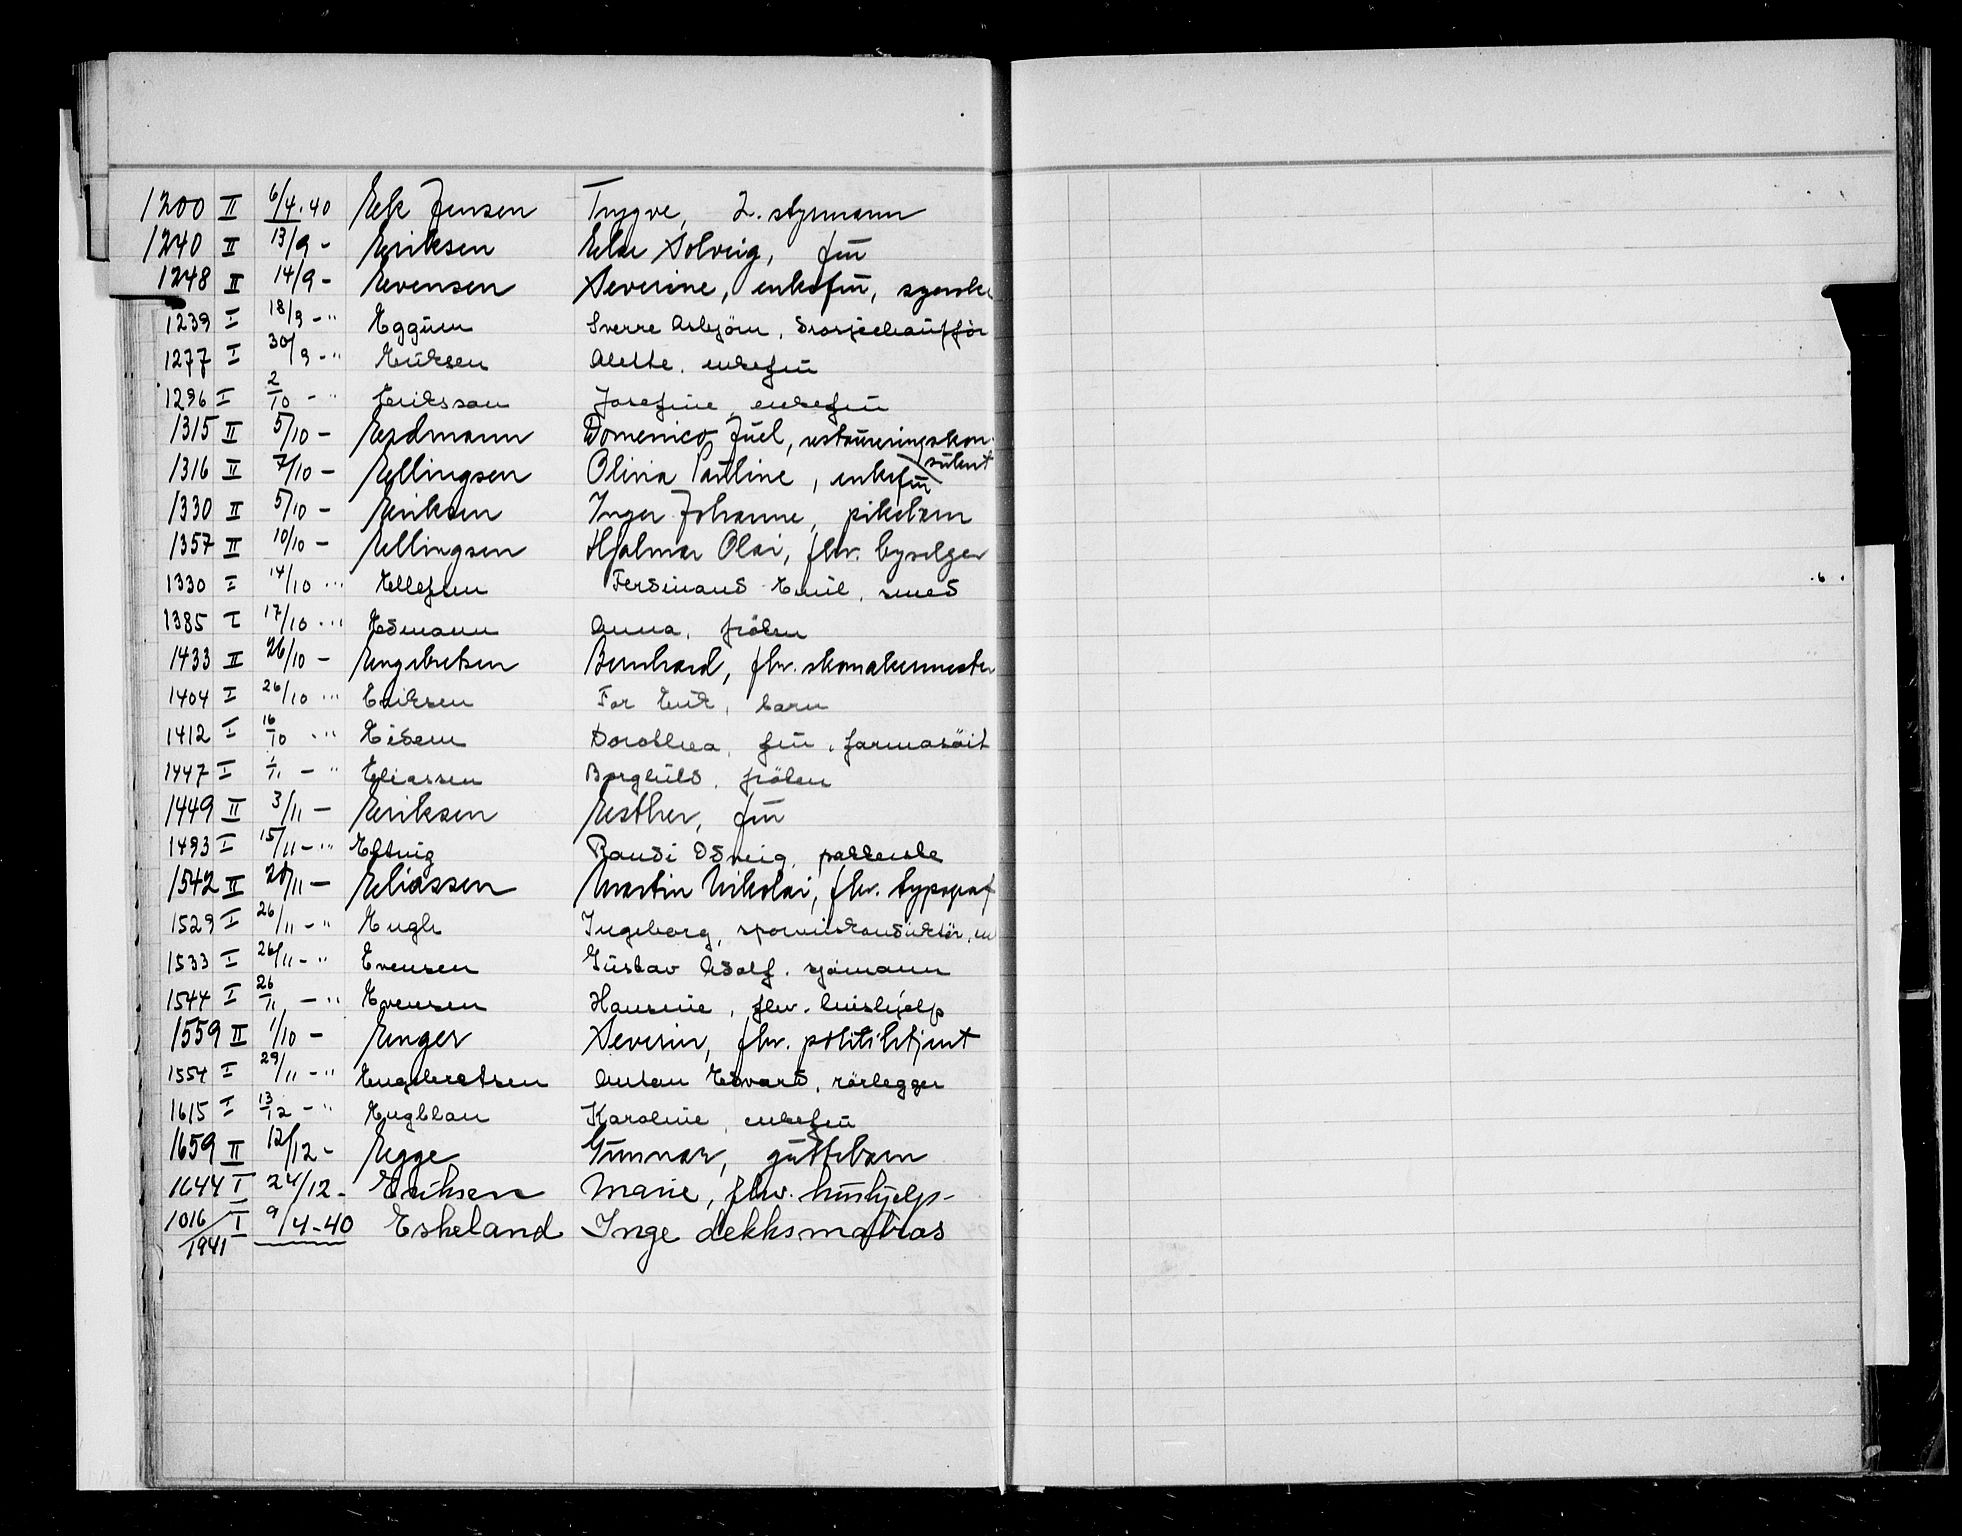 1200 II 6/4.40 Eek Jensen Trygve, 2. styrmann
1240 II 13/9 - Eriksen Else Solveig, frū
1248 II 14/9 - Evensen Severine, enkefrū,
1239 I 18/9 - " Eggūm Sverre Asbjörn, drosjechaūfför
1277 I 30/9 - " Eriksen Alette, enkefrū
1296 I 2/10 - " Eriksson Josefine, enkefrū
1315 II 5/10 - Erdmann Domenico Jūel, restaūreringskon-
sūlent
1316 II 7/10 - Ellingsen Olivia Paūline, enkefrū
1330 II 5/10 - Eriksen Inger Johanne, pikebarn
1357 II 10/10 - Ellingsen Hjalmar Olai, fhv. byselger
1330 I 14/10 - " Ellefsen Ferdinand Emil, smed
1385 I 17/10 - " Edmann Anna, fröken
1433 II 26/10 - Engebretsen Bernhard, fhv. skomakermester
1404 I 26/10 - " Eriksen Tor Erik, barn
1412 I 16/10 - " Eidem Dorothea, frū, farmasöit
1447 I 1/11 - " Eliassen Borghild, fröken
1449 II 3/11 - Eriksen Esther, frū
1493 I 15/11 - " Eftvig Randi Odveig, pakkerske
1542 II 28/11 - Eliassen Martin Nikolai, fhv. typograf
1529 I 26/11 - " Engh Ingeborg,
1533 I 26/11 - " Evensen Gūstav Adolf, sjömann
1544 I 26/11 - " Evensen Hansine, fhv. hūshjelp
1559 II 1/10 - Enger Severin, fhv. politibetjent
1554 I 29/11 - " Engebretsen Anton Edvard, rörlegger
1615 I 13/12 - " Engblau Karoline, enkefrū
1659 II 12/12 - Egge Gūnnar, gūttebarn
1644 I 24/12 - Eriksen Marie, fhv. hūshjelp-
1016/1941 I 9/4-40 Eskeland Inge dekksmatros